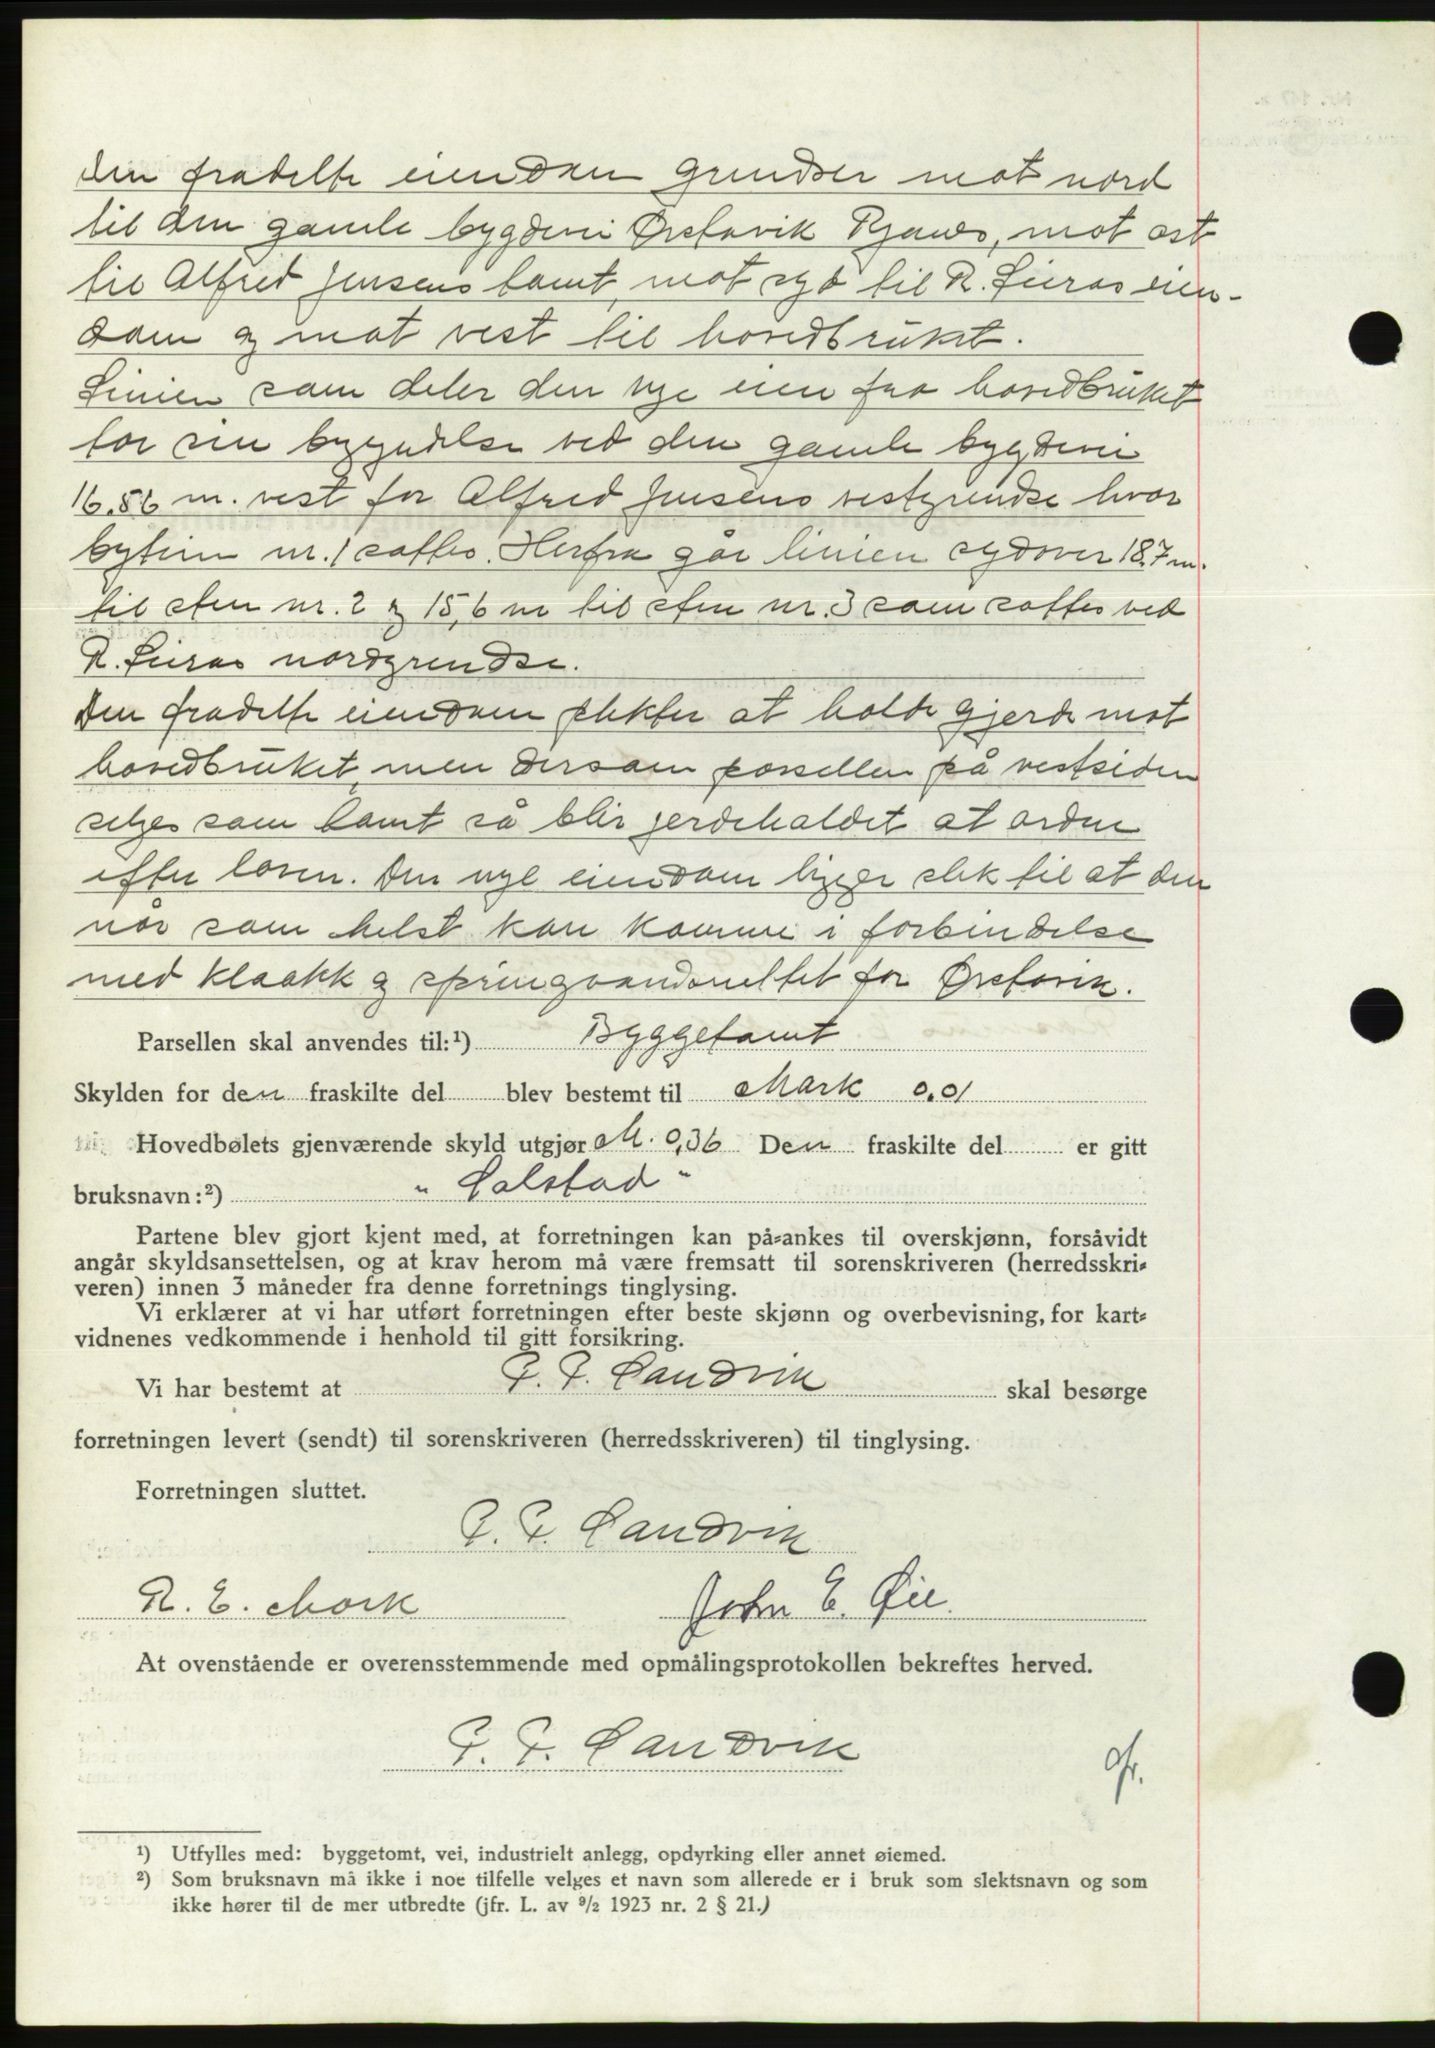 Den fradelte eiendom grendser mot nord
til den gamle bygdevei Ørstavik Rjanes, mot øst
til Alfred Jensens tomt, mot syd til R. Leiras eien-
dom og mot vest til hovedbruket.
Linien som deler den nye eien fra hovedbruket
tar sin begyndelse ved den gamle bygdevei
16.86 m. vest for Alfred Jensens vestgrendse hvor
bytein nr. 1 sattes. Herfra går linien sydover 18.7 m.
til sten nr. 2 og 15,6 m til sten nr. 3 som sattes ved
R. Leiras nordgrendse.
Den fradelte eiendom plikter at holde gjerde mot
hovedbruket, men dersom parsellen på vestsiden
selges som tomt så blir jerdeholdet at ordne
efter loven. Den nye eiendom ligger slik til at den
når som helst kan komme i forbindelse
med kloakk og springvandsnettet for Ørstavik.
Parsellen skal anvendes til:¹) Byggetomt
Skylden for den fraskilte del blev bestemt til Mark 0.01
Hovedbølets gjenværende skyld utgjør M. 0,36 Den fraskilte del er gitt
bruksnavn:²) "Solstad"
Partene blev gjort kjent med, at forretningen kan på-ankes til overskjønn, forsåvidt
angår skyldsansettelsen, og at krav herom må være fremsatt til sorenskriveren (herredsskri-
veren) innen 3 måneder fra denne forretnings tinglysing.
Vi erklærer at vi har utført forretningen efter beste skjønn og overbevisning, for kart-
vidnenes vedkommende i henhold til gitt forsikring.
Vi har bestemt at P. P. Sandvik skal besørge
forretningen levert (sendt) til sorenskriveren (herredsskriveren) til tinglysing.
Forretningen sluttet.
P. P. Sandvik
R. E. Mork John E. Øie.
At ovenstående er overensstemmende med opmålingsprotokollen bekreftes herved.
P. P. Sandvik
¹) Utfylles med: byggetomt, vei, industrielt anlegg, opdyrking eller annet øiemed.
²) Som bruksnavn må ikke i noe tilfelle velges et navn som allerede er i bruk som slektsnavn og som
ikke hører til de mer utbredte (jfr. L. av ⁹/₂ 1923 nr. 2 § 21.)